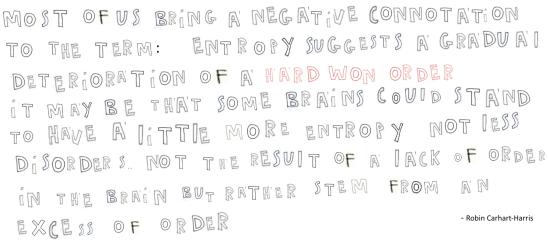 MOST OF US BRiNG A NEGATiVE CONNOTATiON
TO THE TERM: ENTROPY SUGGESTS A GRADUAl
DETERiORATiON OF A HARD WON ORDER
iT MAY BE THAT SOME BRAiNS COUlD STAND
TO HAVE A liTTlE MORE ENTROPY NOT lESS
DiSORDERS.. NOT THE RESUlT OF A lACK OF ORDER
iN THE BRAiN BUT RATHER STEM FROM AN
EXCESS OF ORDER
- Robin Carhart-Harris